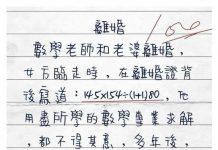 離婚
100
數學老師和老婆離婚，
女方臨走時，在離婚證背
後寫道：145x154÷(1+1)80，他
用盡所學的數學專業求解
，都不得其意，多年後，